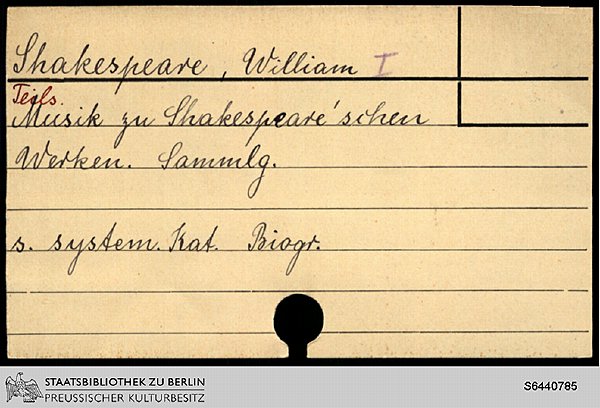 Shakespeare, William I
Teils.
Musik zu Shakespeare'schen
Werken. Sammlg.
s. system. Kat. Biogr.
STAATSBIBLIOTHEK ZU BERLIN
PREUSSISCHER KULTURBESITZ
S6440785